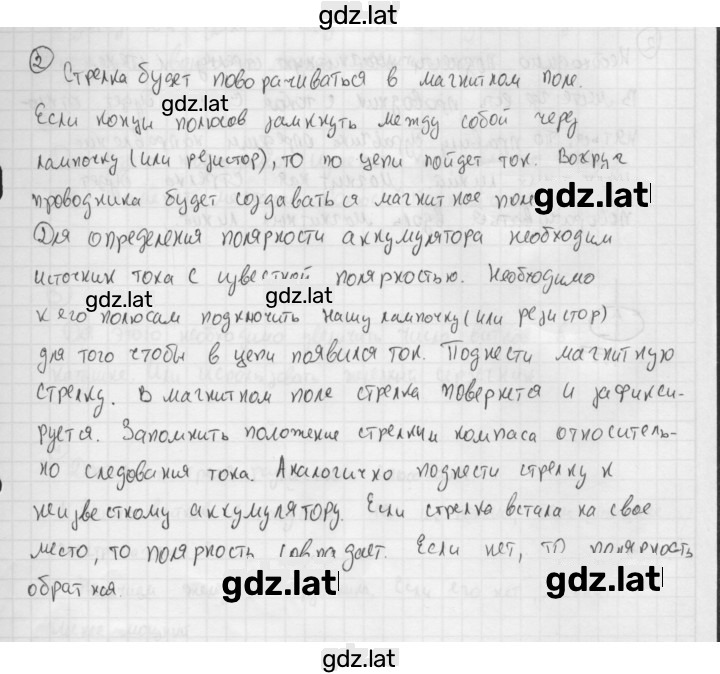 gdz.lat
② Стрелка будет поворачиваться в магнитном поле.
gdz.lat
Если концы полюсов замкнуть между собой через
лампочку (или резистор), то по цепи пойдет ток. Вокруг
проводника будет создаваться магнитное поле
gdz.lat
Для определения полярности аккумулятора необходим
источник тока с известной полярностью. Необходимо
gdz.lat gdz.lat
к его полюсам подключить нашу лампочку (или резистор)
для того чтобы в цепи появился ток. Поднести магнитную
стрелку. В магнитном поле стрелка повернется и зафикси-
руется. Запомнить положение стрелки компаса относитель-
но следования тока. Аналогично поднести стрелку к
неизвестному аккумулятору. Если стрелка встала на свое
место, то полярность совпадает. Если нет, то полярность
обратная.
gdz.lat gdz.lat
gdz.lat